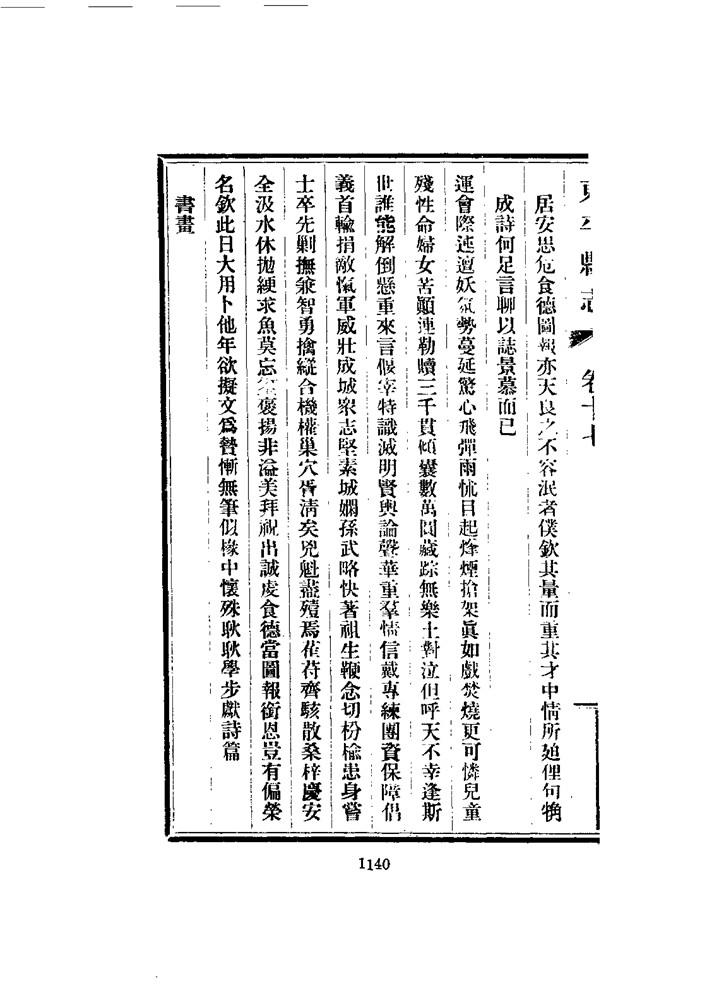 東平縣志 卷十七
居安思危食德圖報亦天良之不容泯者僕欽其量而重其才中情所廹俚句犓
成詩何足言聊以誌景慕而已
運會際迍邅妖氛勢蔓延驚心飛彈雨怵目起烽煙搶架眞如戲焚燒更可憐兒童
殘性命婦女苦顚連勒贖三千貫傾囊數萬圓藏踪無樂土對泣但呼天不幸逢斯
世誰能解倒懸重來言偃宰特識滅明賢輿論聲華重羣情信戴專練團資保障倡
義首輸捐敵愾軍威壯成城衆志堅素城嫻孫武略快著祖生鞭念切枌楡患身甞
士卒先剿撫兼智勇擒縱合機權巢穴胥淸矣兇魁盡殪焉萑苻齊駭散桑梓慶安
全汲水休拋綆求魚莫忘褒揚非溢美拜祝出誠虔食德當圖報銜恩豈有偏榮
名欽此日大用卜他年欲擬文爲贊慚無筆似椽中懷殊耿耿學步獻詩篇
書畫
1140